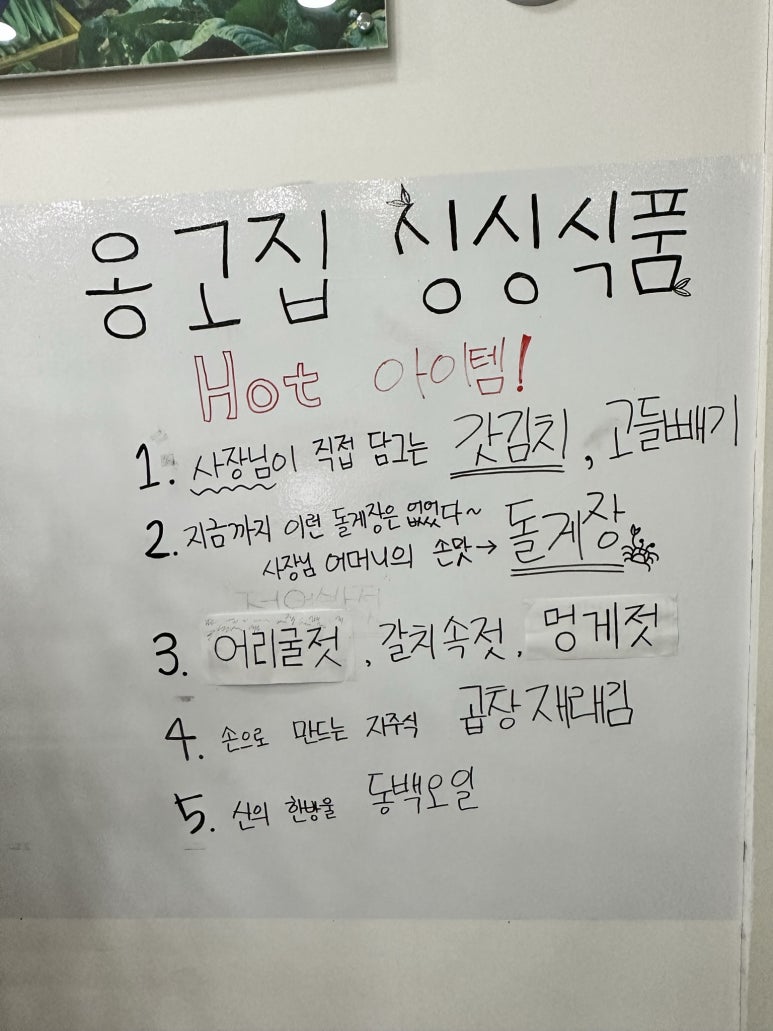 옹고집 싱싱식품
Hot 아이템!
1. 사장님이 직접 담그는 갓김치, 고들빼기
2. 지금까지 이런 돌게장은 없었다~
사장님 어머니의 손맛→ 돌게장
3. 어리굴젓, 갈치속젓, 멍게젓
4. 손으로 만드는 자주식 곱창재래김
5. 신의 한방울 동백오일